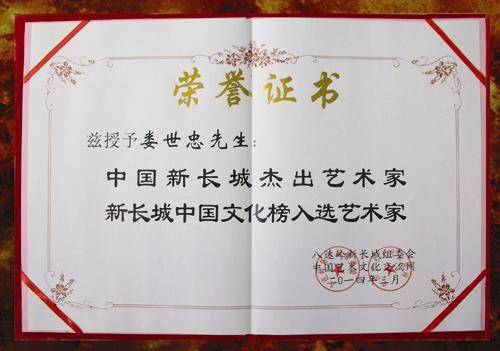 荣誉证书
兹授予娄世忠先生：
中国新长城杰出艺术家
新长城中国文化榜入选艺术家
八达岭新长城组委会
中国艺术文化交流网
二〇一四年三月